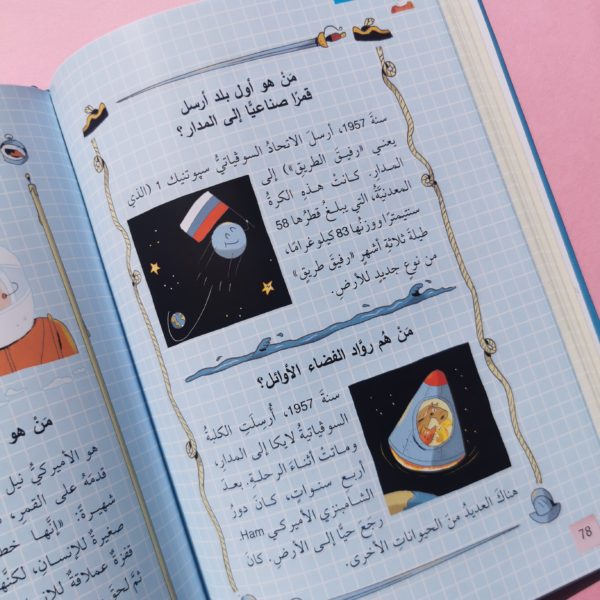 مَنْ هو أول بلد أرسل
قمرًا صناعيًّا إلى المدار؟
سنةَ 1957، أرسلَ الاتحادُ السوڤياتيُّ سپوتنيك 1 (الذي
يعني «رفيقَ الطريق») إلى
المدارِ. كانتْ هذهِ الكرةُ
المعدنيّةُ، التي يبلغُ قطرُها 58
سنتيمترًا ووزنُها 83 كيلوغرامًا،
طيلةَ ثلاثةِ أشهرٍ «رفيقَ طريقٍ»
من نوعٍ جديدٍ للأرضِ.
مَنْ هُم روّاد الفضاء الأوائل؟
سنةَ 1957، أُرسلَتِ الكلبةُ
السوڤياتيّةُ لايكا إلى المدارِ،
وماتتْ أثناءَ الرحلةِ. بعدَ
أربعِ سنواتٍ، كانَ دورُ
الشامبنزي الأميركي Ham.
رجعَ حيًّا إلى الأرضِ. كانَ
هناكَ العديدُ منَ الحيواناتِ الأخرى.
78
مَنْ هو
هو الأميركيُّ نيل
قدمَهُ على القمرِ
شهيرةً: «إنّها خط
صغيرةٌ للإنسانِ، لكنّها
قفزةٌ عملاقةٌ للإنس